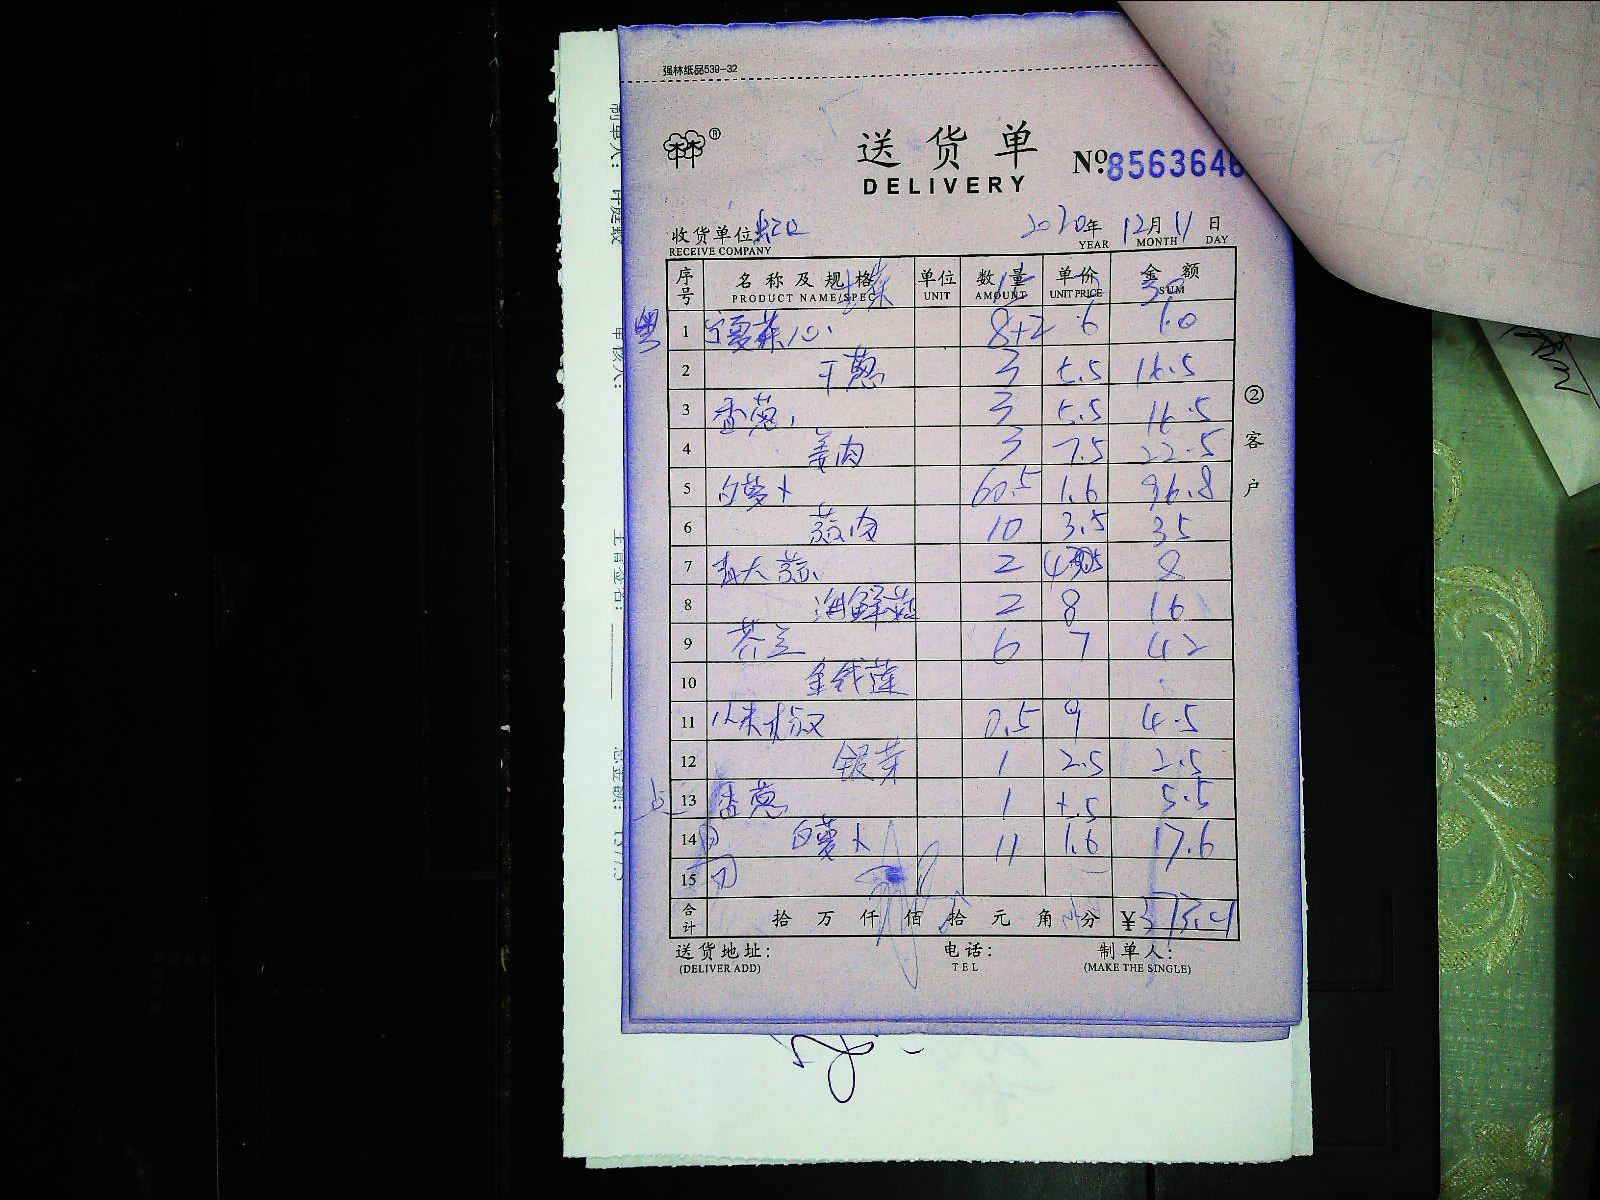 强林纸品539-32
林®
送货单
DELIVERY
Nº.8563646
收货单位
RECEIVE COMPANY
2020年 12月 11日
YEAR MONTH DAY
序号 名称及规格 单位 数量 单价 金额
PRODUCT NAME/SPEC UNIT AMOUNT UNIT PRICE SUM
粤 1 宁夏菜心 8+2 6 60
2 干葱 3 5.5 16.5
3 香葱 3 5.5 16.5
4 姜肉 3 7.5 22.5
5 白萝卜 60.5 1.6 96.8
6 蒜肉 10 3.5 35
7 青大蒜 2 4 8
8 海鲜菇 2 8 16
9 芥兰 6 7 42
10 金钱莲
11 小米椒 0.5 9 4.5
12 银芽 1 2.5 2.5
点 13 香葱 1 5.5 5.5
14 白萝卜 11 1.6 17.6
15
合计 拾 万 仟 佰 拾 元 角 分 ¥
送货地址: 电话: 制单人:
(DELIVER ADD) TEL (MAKE THE SINGLE)
②客户
制单人:
审核人:
主管签名:
总金额: